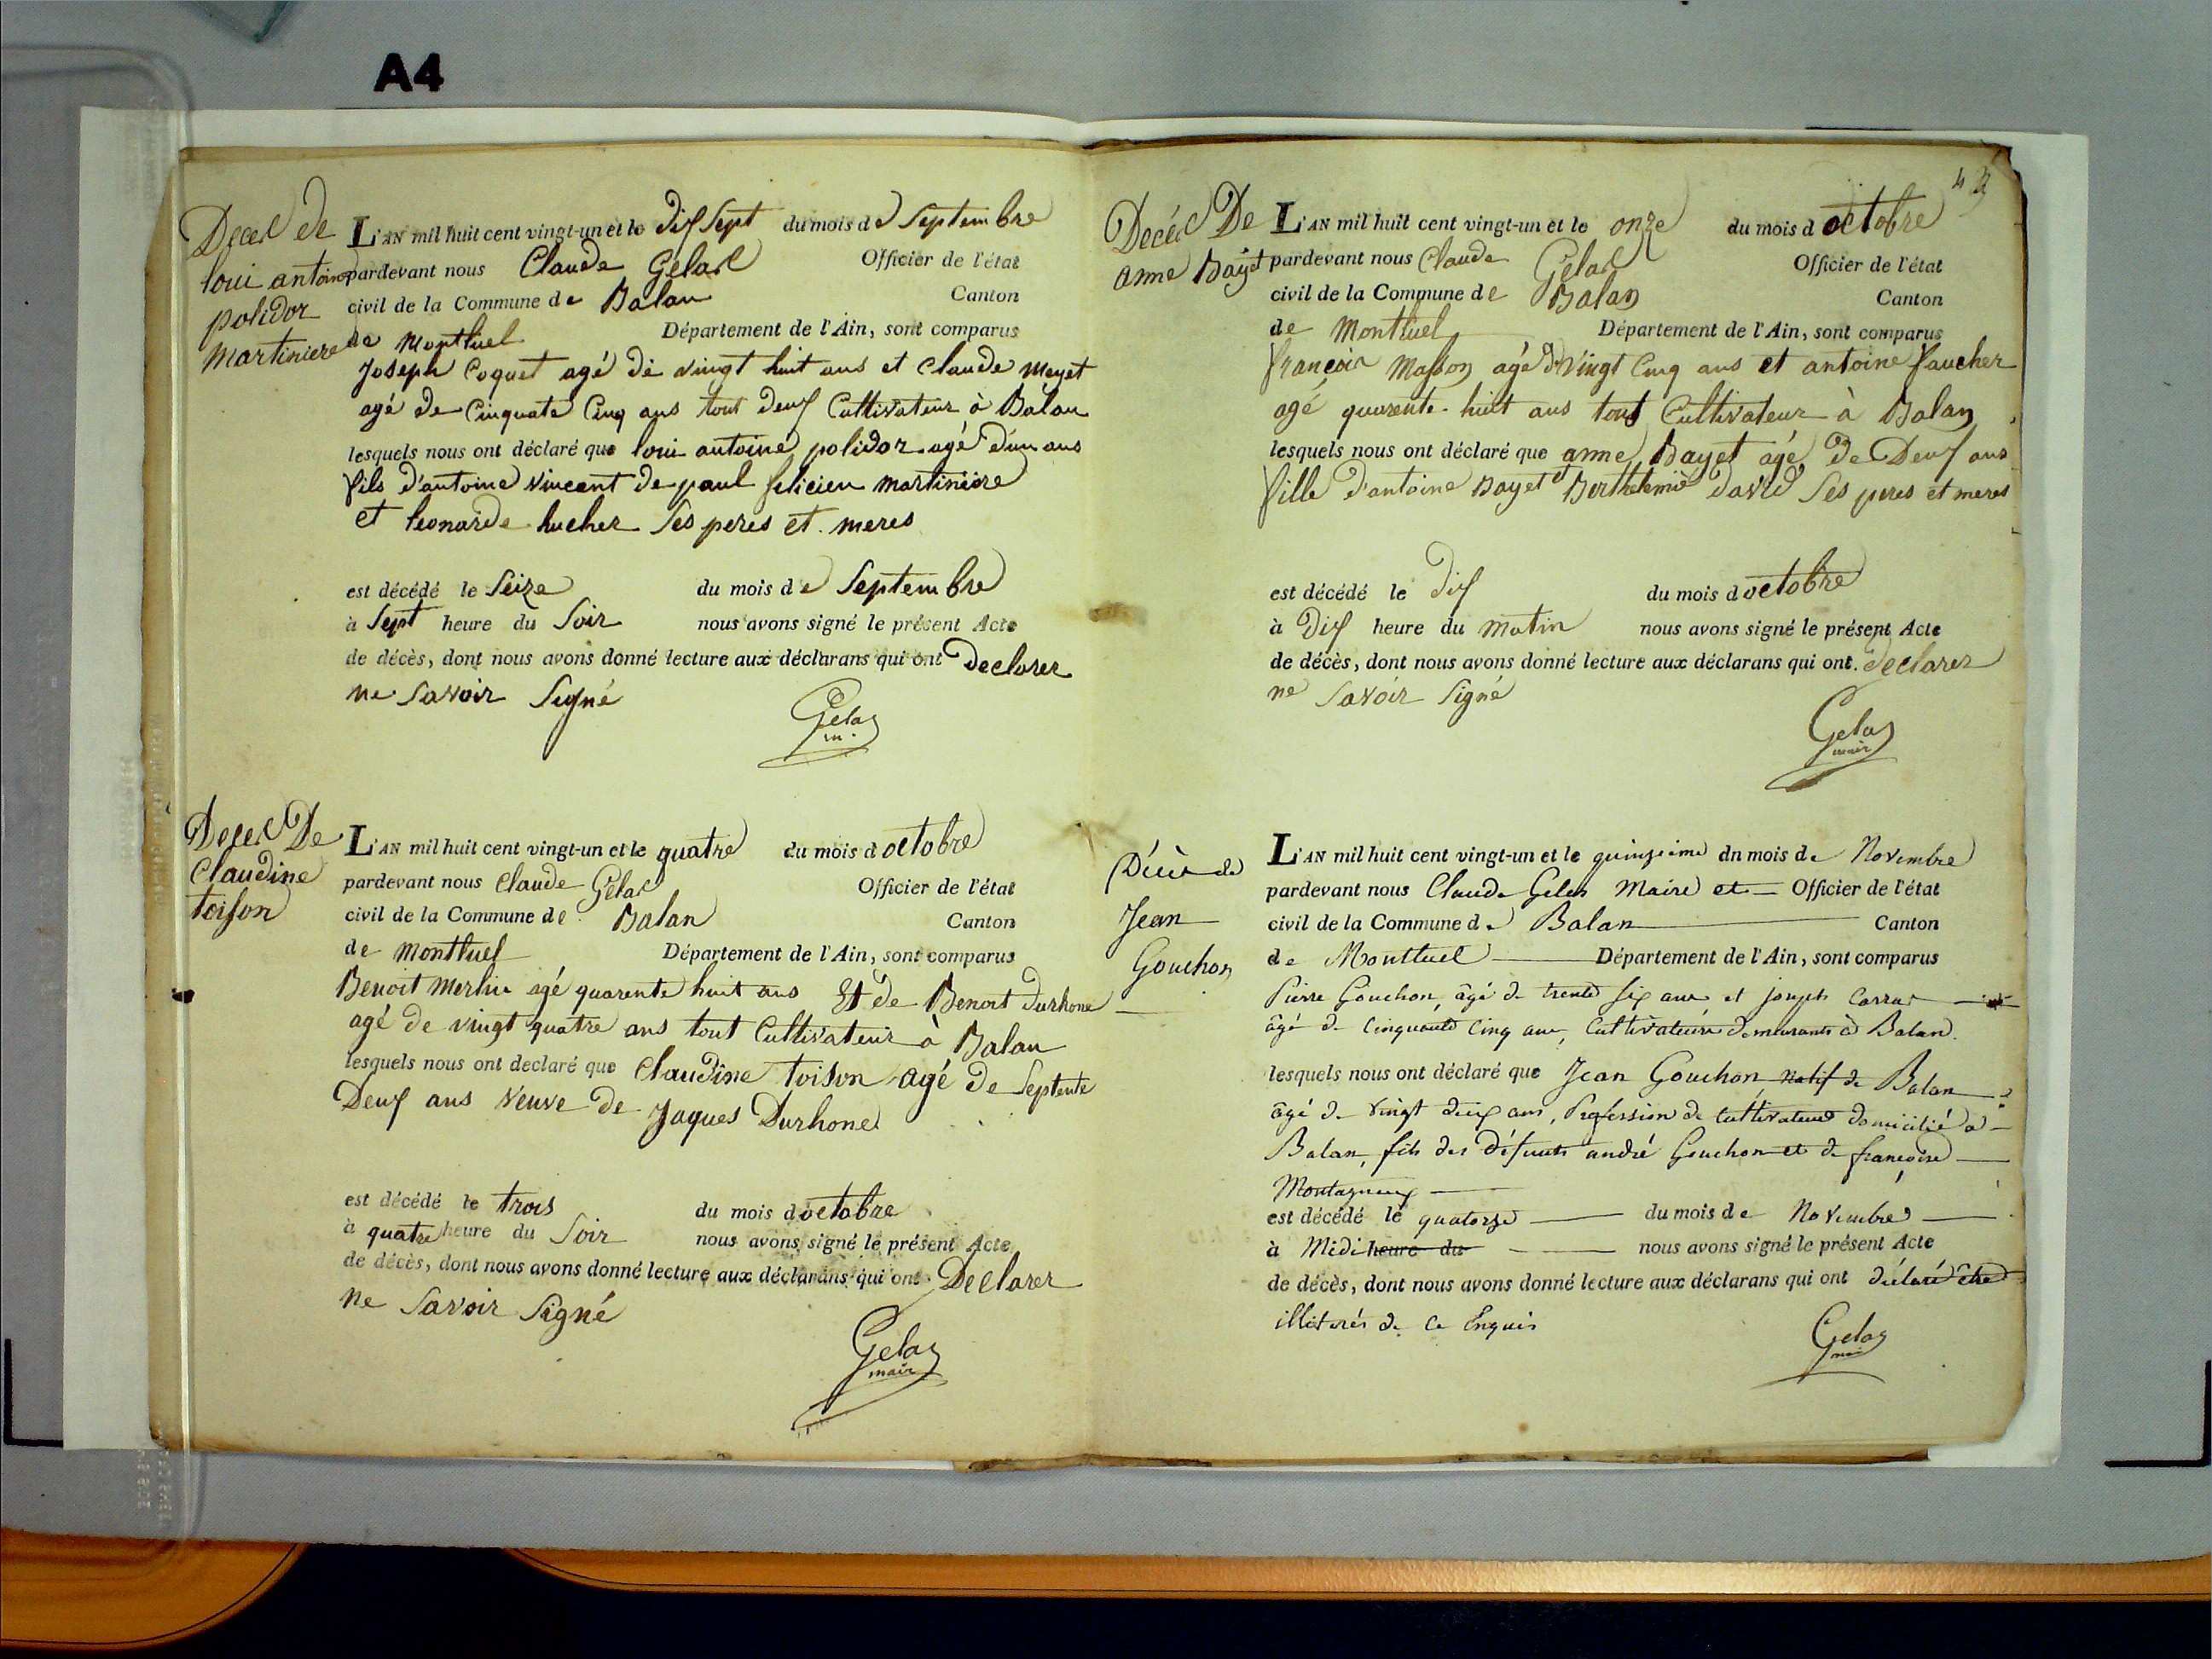 A4
Decès de
loui antoine
polidor
martiniere
L'AN mil huit cent vingt-un et le dix Sept du mois de Septembre
pardevant nous Claude Gelas Officier de l'état
civil de la Commune de Balan Canton
de Montluel Département de l'Ain, sont comparus
Joseph Coquet agé de vingt huit ans et Claude Mayet
agé de Cinquate Cinq ans tout deux Cultivateur à Balan
lesquels nous ont déclaré que loui antoine polidor agé d'un ans
fils d'antoine vincent de paul felicien martiniere
et leonarde lucher Ses peres et meres
est décédé le Seize du mois de Septembre
à Sept heure du Soir nous avons signé le présent Acte
de décès, dont nous avons donné lecture aux déclarans qui ont Declarer
ne Savoir Signé
Gelas
m.
Decès De
Claudine
toison
L'AN mil huit cent vingt-un et le quatre du mois d octobre
pardevant nous Claude Gelas Officier de l'état
civil de la Commune de Balan Canton
de Montluel Département de l'Ain, sont comparus
Benoit Merlin agé quarente huit ans Et de Benoit Durhone
agé de vingt quatre ans tout Cultivateur à Balan
lesquels nous ont declaré que Claudine toison agé de Septente
Deux ans Veuve de Jaques Durhone
est décédé le trois du mois d octobre
à quatre heure du Soir nous avons signé le présent Acte
de décès, dont nous avons donné lecture aux déclarans qui ont Declarer
ne Savoir Signé
Gelas
mair
Decés De
anne Bayet
L'AN mil huit cent vingt-un et le onze du mois d octobre
pardevant nous Claude Gelas Officier de l'état
civil de la Commune de Balan Canton
de Montluel Département de l'Ain, sont comparus
françois Masson agé de Vingt Cinq ans et antoine faucher
agé quarente-huit ans tout Cultivateur à Balan
lesquels nous ont déclaré que anne Bayet agé de Deux ans
fille d'antoine Bayet et Berthelemie David Ses peres et meres
est décédé le dix du mois d octobre
à Dix heure du matin nous avons signé le présent Acte
de décès, dont nous avons donné lecture aux déclarans qui ont declarer
ne Savoir Signé
Gelas
mair
Décès de
Jean
Gouchon
L'AN mil huit cent vingt-un et le quinzieme du mois de Novembre
pardevant nous Claude Gelas Maire et Officier de l'état
civil de la Commune de Balan Canton
de Montluel Département de l'Ain, sont comparus
Pierre Gouchon, âgé de trente six ans et joseph
âgé de Cinquante Cinq ans, Cultivateurs demeurants à Balan.
lesquels nous ont déclaré que Jean Gouchon natif de Balan
âgé de vingt deux ans, Profession de Cultivateur domicilié à
Balan, fils des défunts andré Gouchon et de françoise
Montagneux
est décédé le quatorze du mois de Novembre
à Midi heure du nous avons signé le présent Acte
de décès, dont nous avons donné lecture aux déclarans qui ont déclaré être
illiterés de ce Enquis
Gelas
mair